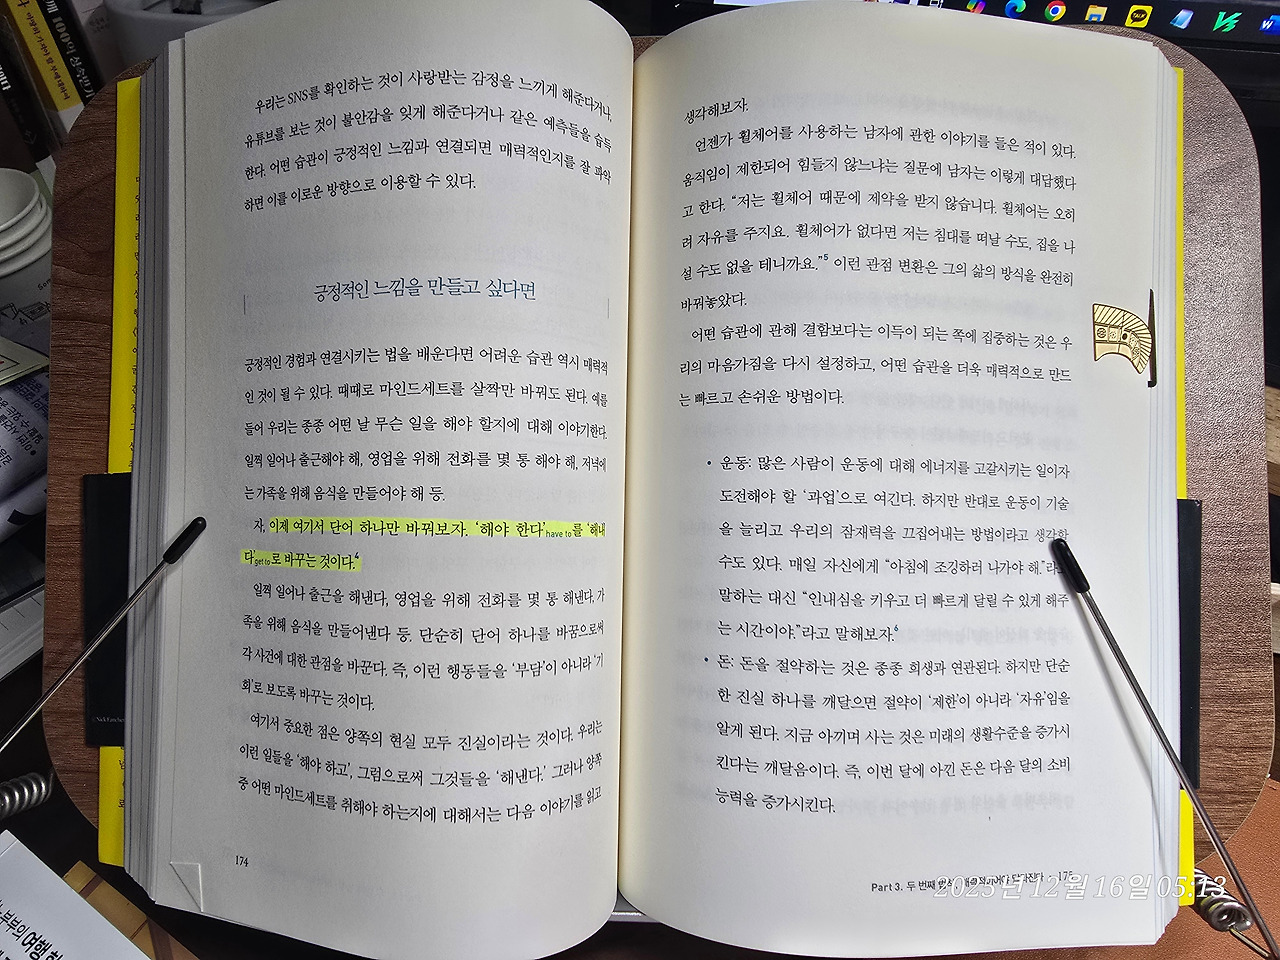 우리는 SNS를 확인하는 것이 사랑받는 감정을 느끼게 해준다거나,
유튜브를 보는 것이 불안감을 잊게 해준다거나 같은 예측들을 습득
한다. 어떤 습관이 긍정적인 느낌과 연결되면 매력적인지를 잘 파악
하면 이를 이로운 방향으로 이용할 수 있다.
긍정적인 느낌을 만들고 싶다면
긍정적인 경험과 연결시키는 법을 배운다면 어려운 습관 역시 매력적
인 것이 될 수 있다. 때때로 마인드세트를 살짝만 바꿔도 된다. 예를
들어 우리는 종종 어떤 날 무슨 일을 해야 할지에 대해 이야기한다.
일찍 일어나 출근해야 해, 영업을 위해 전화를 몇 통 해야 해, 저녁에
는 가족을 위해 음식을 만들어야 해 등.
자, 이제 여기서 단어 하나만 바꿔보자. ‘해야 한다’have to를 ‘해내
다’get to로 바꾸는 것이다.4
일찍 일어나 출근을 해낸다, 영업을 위해 전화를 몇 통 해낸다, 가
족을 위해 음식을 만들어낸다 등. 단순히 단어 하나를 바꿈으로써
각 사건에 대한 관점을 바꾼다. 즉, 이런 행동들을 ‘부담’이 아니라 ‘기
회’로 보도록 바꾸는 것이다.
여기서 중요한 점은 양쪽의 현실 모두 진실이라는 것이다. 우리는
이런 일들을 ‘해야 하고’, 그럼으로써 그것들을 ‘해낸다.’ 그러나 양쪽
중 어떤 마인드세트를 취해야 하는지에 대해서는 다음 이야기를 읽고
174
생각해보자.
언젠가 휠체어를 사용하는 남자에 관한 이야기를 들은 적이 있다.
움직임이 제한되어 힘들지 않느냐는 질문에 남자는 이렇게 대답했다
고 한다. “저는 휠체어 때문에 제약을 받지 않습니다. 휠체어는 오히
려 자유를 주지요. 휠체어가 없다면 저는 침대를 떠날 수도, 집을 나
설 수도 없을 테니까요.”5 이런 관점 변환은 그의 삶의 방식을 완전히
바꿔놓았다.
어떤 습관에 관해 결함보다는 이득이 되는 쪽에 집중하는 것은 우
리의 마음가짐을 다시 설정하고, 어떤 습관을 더욱 매력적으로 만드
는 빠르고 손쉬운 방법이다.
• 운동: 많은 사람이 운동에 대해 에너지를 고갈시키는 일이자
도전해야 할 ‘과업’으로 여긴다. 하지만 반대로 운동이 기술
을 늘리고 우리의 잠재력을 끄집어내는 방법이라고 생각할
수도 있다. 매일 자신에게 “아침에 조깅하러 나가야 해.”라고
말하는 대신 “인내심을 키우고 더 빠르게 달릴 수 있게 해주
는 시간이야.”라고 말해보자.6
• 돈: 돈을 절약하는 것은 종종 희생과 연관된다. 하지만 단순
한 진실 하나를 깨달으면 절약이 ‘제한’이 아니라 ‘자유’임을
알게 된다. 지금 아끼며 사는 것은 미래의 생활수준을 증가시
킨다는 깨달음이다. 즉, 이번 달에 아낀 돈은 다음 달의 소비
능력을 증가시킨다.
Part 3. 두 번째 법칙
2025년 12월 16일 05:13
부부의 여행
TALK